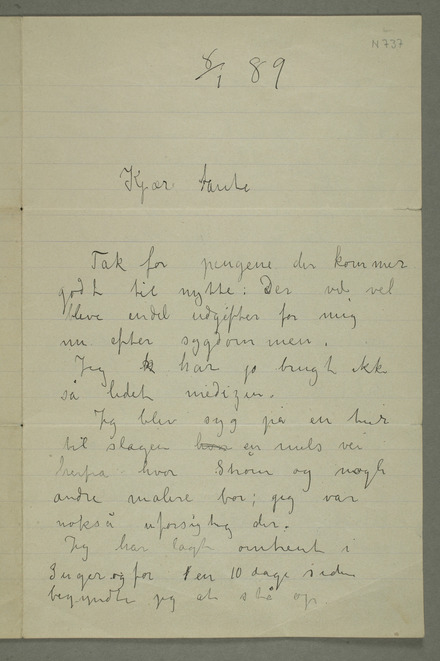 N 737
8/1 89
Kjære tante
Tak for pengene der kommer
godt til nytte: Der vil vel
blive endel udgifter for mig
nu efter sygdommen.
Jeg har jo brugt ikke
så lidet medizin.
Jeg blev syg på en tur
til slagen en mils vei
herfra hvor Strøm og nogle
andre malere bor; jeg var
nokså uforsigtig der.
Jeg har lagt omtrent i
3 uger og for en 10 dage siden
begyndte jeg at stå op.